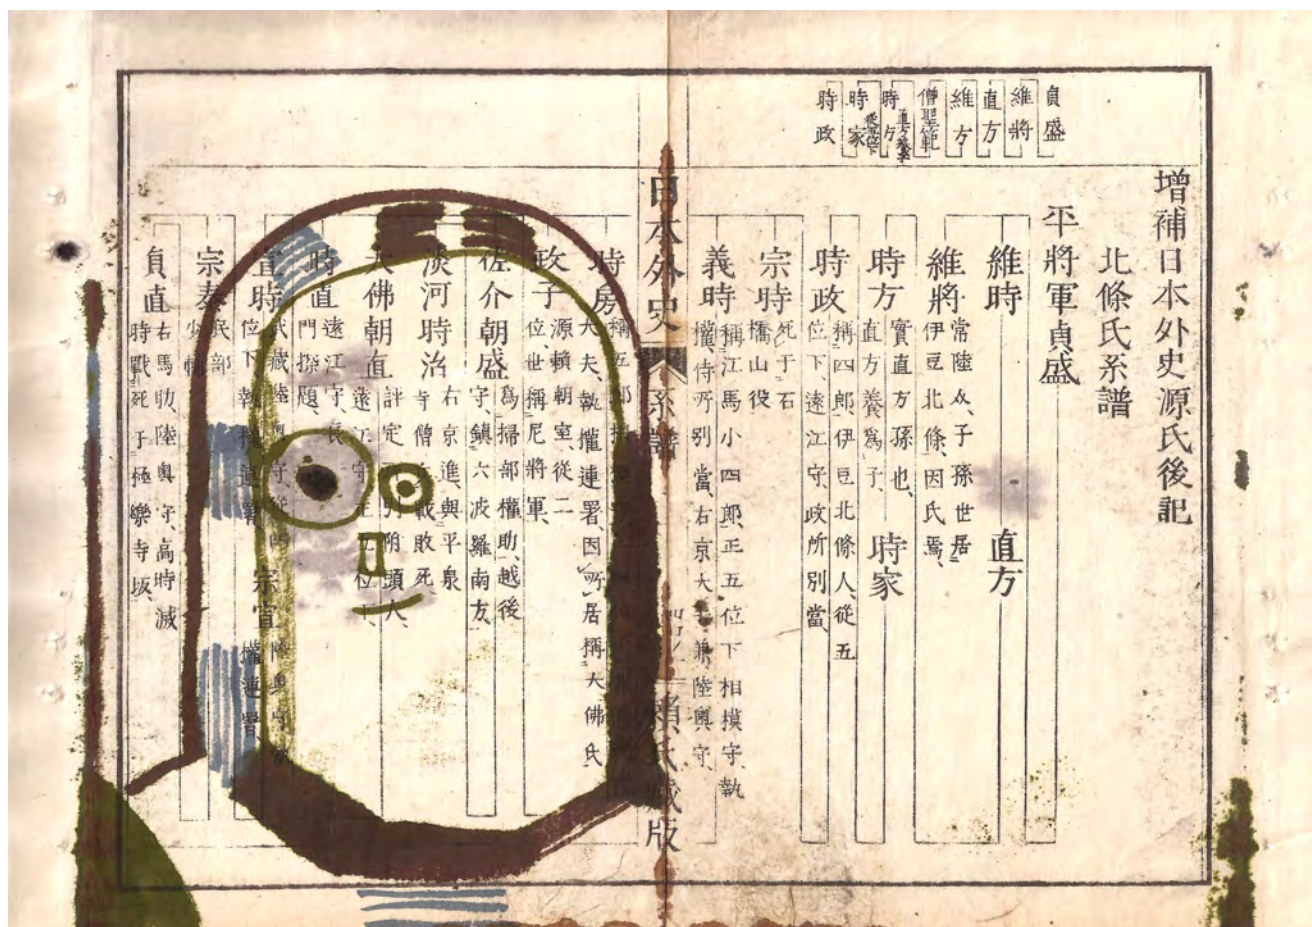 貞盛
維將
直方
維方
僧聖範
時方
時家
時政
增補日本外史源氏後記
北條氏系譜
平將軍貞盛
維時
直方
維將
常陸介、子孫世居
伊豆北條、因氏焉、
時方
實直方孫也、
直方養爲子、
時家
時政
稱四郎、伊豆北條人、從五
位下、遠江守、政所別當、
宗時
死于石
橋山役
義時
稱江馬小四郎、正五位下相摸守、執
權、侍所別當、右京大夫兼陸奧守、
日本外史
系譜
賴氏藏版
時房
大夫、執權連署、因所居稱大佛氏
政子
源賴朝室、從二
位、世稱尼將軍、
佐介朝盛
爲掃部權助、越後
守、鎮六波羅南方、
淡河時治
右京進、與平泉
寺僧戰敗死、
大佛朝直
時直
遠江守、長
門探題、
宣時
宗宣
陸奧守
權連署、
宗泰
民部
少輔
貞直
右馬助、陸奧守、高時滅
時戰死于極樂寺坂、